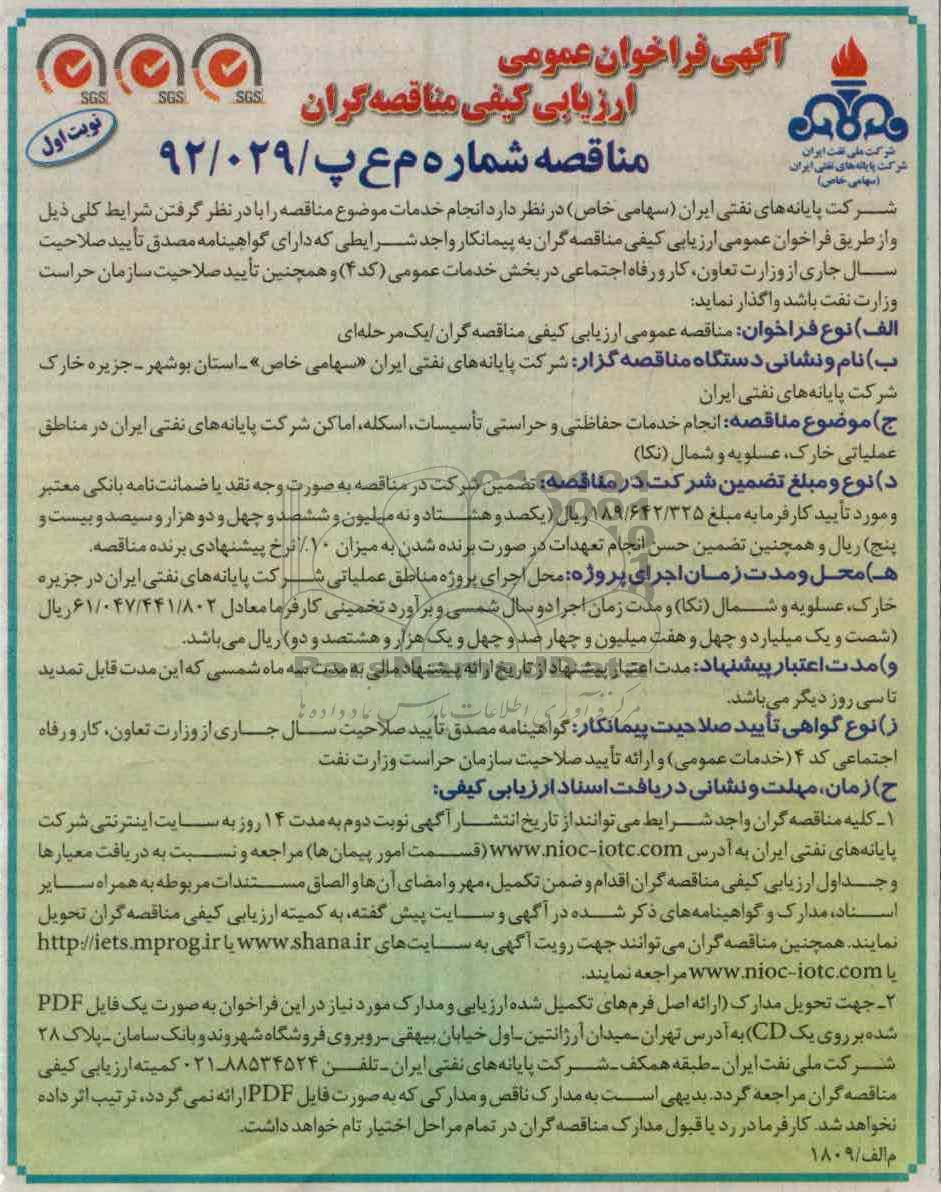 آگهی فراخوان عمومی
ارزیابی کیفی مناقصه‌گران
مناقصه شماره م‌ع‌پ/۹۲/۰۲۹
نوبت اول
SGS
SGS
SGS
شرکت ملی نفت ایران
شرکت پایانه‌های نفتی ایران
(سهامی خاص)
شرکت پایانه‌های نفتی ایران (سهامی خاص) در نظر دارد انجام خدمات موضوع مناقصه را با در نظر گرفتن شرایط کلی ذیل
و از طریق فراخوان عمومی ارزیابی کیفی مناقصه‌گران به پیمانکار واجد شرایطی که دارای گواهینامه مصدق تأیید صلاحیت
سال جاری از وزارت تعاون، کار و رفاه اجتماعی در بخش خدمات عمومی (کد ۴) و همچنین تأیید صلاحیت سازمان حراست
وزارت نفت باشد واگذار نماید:
الف) نوع فراخوان: مناقصه عمومی ارزیابی کیفی مناقصه گران/یک‌مرحله‌ای
ب) نام و نشانی دستگاه مناقصه گزار: شرکت پایانه‌های نفتی ایران «سهامی خاص» ـ استان بوشهر ـ جزیره خارک
شرکت پایانه‌های نفتی ایران
ج) موضوع مناقصه: انجام خدمات حفاظتی و حراستی تأسیسات، اسکله، اماکن شرکت پایانه‌های نفتی ایران در مناطق
عملیاتی خارک، عسلویه و شمال (نکا)
د) نوع و مبلغ تضمین شرکت در مناقصه: تضمین شرکت در مناقصه به صورت وجه نقد یا ضمانت‌نامه بانکی معتبر
و مورد تأیید کارفرما به مبلغ ۱۸۹/۶۴۲/۳۲۵ ریال (یکصد و هشتاد و نه میلیون و ششصد و چهل و دو هزار و سیصد و بیست و
پنج) ریال و همچنین تضمین حسن انجام تعهدات در صورت برنده شدن به میزان ۱۰٪ نرخ پیشنهادی برنده مناقصه.
هـ) محل و مدت زمان اجرای پروژه: محل اجرای پروژه مناطق عملیاتی شرکت پایانه‌های نفتی ایران در جزیره
خارک، عسلویه و شمال (نکا) و مدت زمان اجرا دو سال شمسی و برآورد تخمینی کارفرما معادل ۶۱/۰۴۷/۴۴۱/۸۰۲ ریال
(شصت و یک میلیارد و چهل و هفت میلیون و چهار صد و چهل و یک هزار و هشتصد و دو) ریال می‌باشد.
و) مدت اعتبار پیشنهاد: مدت اعتبار پیشنهاد از تاریخ ارائه پیشنهاد مالی به مدت سه ماه شمسی که این مدت قابل تمدید
تا سی روز دیگر می‌باشد.
مرکز فرآوری اطلاعات پارس نماد داده ها
ز) نوع گواهی تأیید صلاحیت پیمانکار: گواهینامه مصدق تأیید صلاحیت سال جاری از وزارت تعاون، کار و رفاه
اجتماعی کد ۴ (خدمات عمومی) و ارائه تأیید صلاحیت سازمان حراست وزارت نفت
ح) زمان، مهلت و نشانی دریافت اسناد ارزیابی کیفی:
۱ـ کلیه مناقصه گران واجد شرایط می توانند از تاریخ انتشار آگهی نوبت دوم به مدت ۱۴ روز به سایت اینترنتی شرکت
پایانه‌های نفتی ایران به آدرس www.nioc-iotc.com (قسمت امور پیمان‌ها) مراجعه و نسبت به دریافت معیارها
و جداول ارزیابی کیفی مناقصه گران اقدام و ضمن تکمیل، مهر و امضای آن‌ها و الصاق مستندات مربوطه به همراه سایر
اسناد، مدارک و گواهینامه‌های ذکر شده در آگهی و سایت پیش گفته، به کمیته ارزیابی کیفی مناقصه گران تحویل
نمایند. همچنین مناقصه گران می توانند جهت رویت آگهی به سایت‌های www.shana.ir یا http://iets.mprog.ir
یا www.nioc-iotc.com مراجعه نمایند.
۲ـ جهت تحویل مدارک (ارائه اصل فرم‌های تکمیل شده ارزیابی و مدارک مورد نیاز در این فراخوان به صورت یک فایل PDF
شده بر روی یک CD) به آدرس تهران ـ میدان آرژانتین ـ اول خیابان بیهقی ـ روبروی فروشگاه شهروند و بانک سامان ـ پلاک ۲۸
شرکت ملی نفت ایران ـ طبقه همکف ـ شرکت پایانه‌های نفتی ایران ـ تلفن ۸۸۵۳۴۵۲۴ـ۰۲۱ کمیته ارزیابی کیفی
مناقصه گران مراجعه گردد. بدیهی است به مدارک ناقص و مدارکی که به صورت فایل PDF ارائه نمی گردد، ترتیب اثر داده
نخواهد شد. کارفرما در رد یا قبول مدارک مناقصه گران در تمام مراحل اختیار تام خواهد داشت.
م‌الف/۱۸۰۹